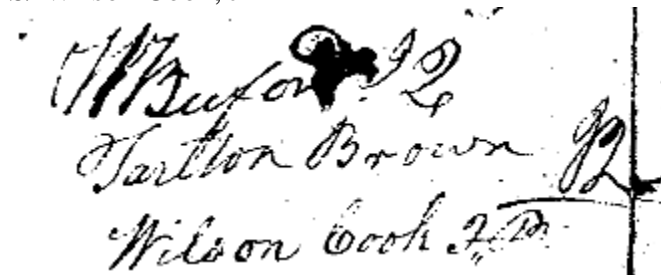 Wm Buford J Q
Tarlton Brown J Q
Wilson Cook J. Q.